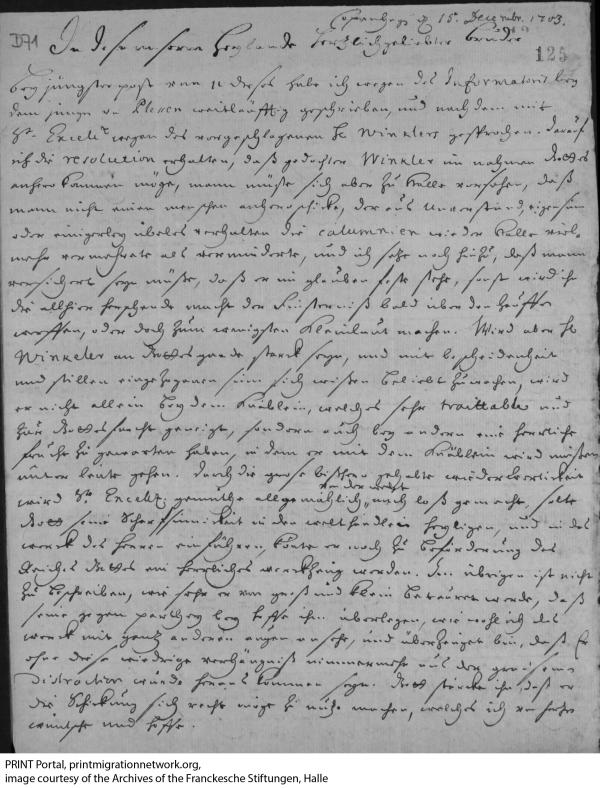 Copenhag. d. 15. Decembr. 1703.
D71
125
In dem unserm Heylande herzlich geliebter bruder
bey jüngster post vom 11 dieses habe ich wegen des Informatoris bey
dem jungen von Plessen weitläufftig geschrieben, und nachdem mit
Sr. Excell. wegen des vorgeschlagenen H. Winklers gesprochen. darauf
ich die resolution erhalten, daß gedachter Winkler im nahmen Gottes
anhero kommen möge, mann müste sich aber zu Halle vorsehen, daß
mann nicht einen menschen anhero schicke, der aus unverstand, eigensinn
oder einigerley übeles verhalten die calumnien wieder Halle viel-
mehr vermehrete als verminderte, und ich setze noch hinzu, daß mann
versichert seyn müste, daß er im glauben feste stehe, sonst wird ihn
die allhier herschende macht der Finsterniß bald über den hauffen
werffen, oder doch zum wenigsten kleinlaut machen. Wird aber H.
Winckeler an Gottes gnade starck seyn, und mit bescheidenheit
und stillen eingezogenen sinn sich wissen beliebt zu machen, wird
er nicht allein bey dem Knäblein, welches sehr traittable und
zur Gottesfurcht geneigt, sondern auch bey andern eine herrliche
frucht zu gewarten haben, indem er mit dem Knäblein wird müssen
unter leute gehen. Durch die grose bishero gehabte wiederwertigkeit
wird Sr. Excell. gemüthe allgemählich von der welt loß gemacht, solte
Gott seine Scharffsinnikeit in den welthändeln heyligen, und in das
werck des Herren einführen könte er noch zu beförderung des
Reiches Gottes ein herrliches werckzeug werden. Im übrigen ist nicht
zu beschreiben, wie sehr er von groß und klein betauret werde, daß
seine gegen parthey bey hoffe ihm überlegen, wie wohl ich das
werck mit gantz anderen augen ansehe, und überzeuget bin, daß Er
ohne diese wiedrige verhängniß nimmermehr aus der
distraction würde heraus kommen seyn. Gott stärcke ihn, daß er
die Schickung sich recht möge zu nutze machen, welches ich von hertzen
wünsche und hoffe.
PRINT Portal, printmigrationnetwork.org,
image courtesy of the Archives of the Franckesche Stiftungen, Halle